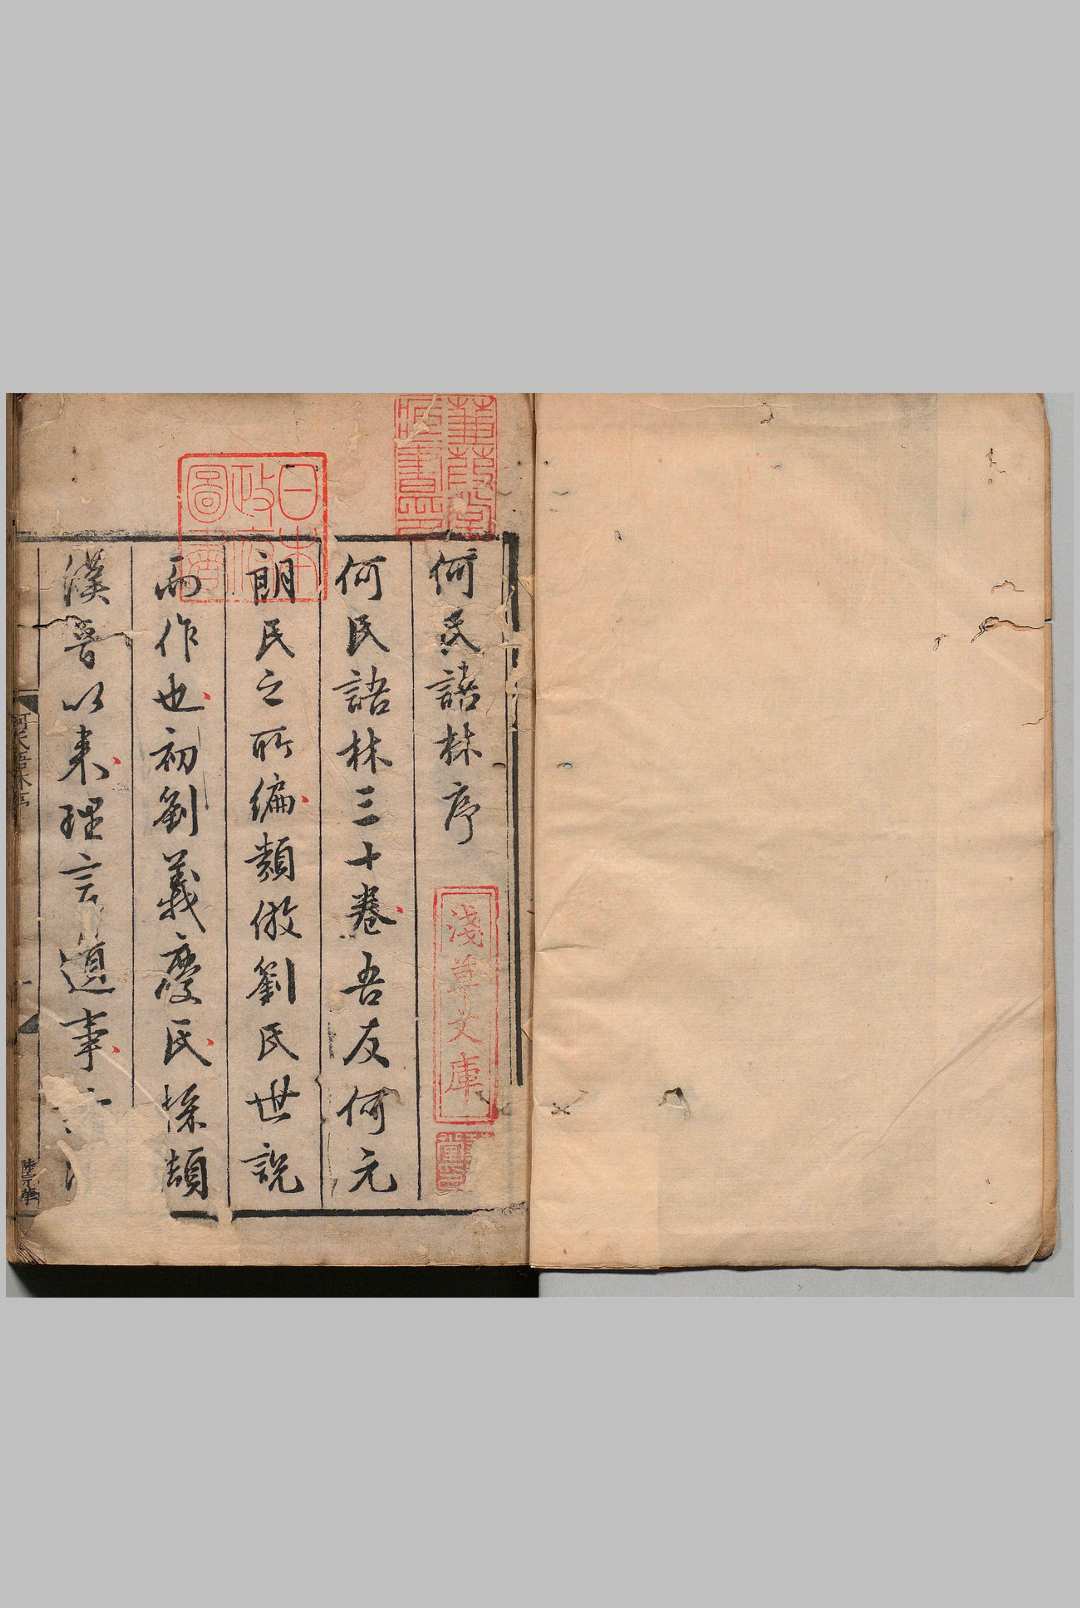 何氏語林序
何氏語林三十卷吾友何元
朗氏之所編類倣劉氏世說
而作也初劉義慶氏採擷
漢晉以來理言遺事
日本
政府
圖書
蒹葭堂
藏書印
淺草文庫
何氏語林序